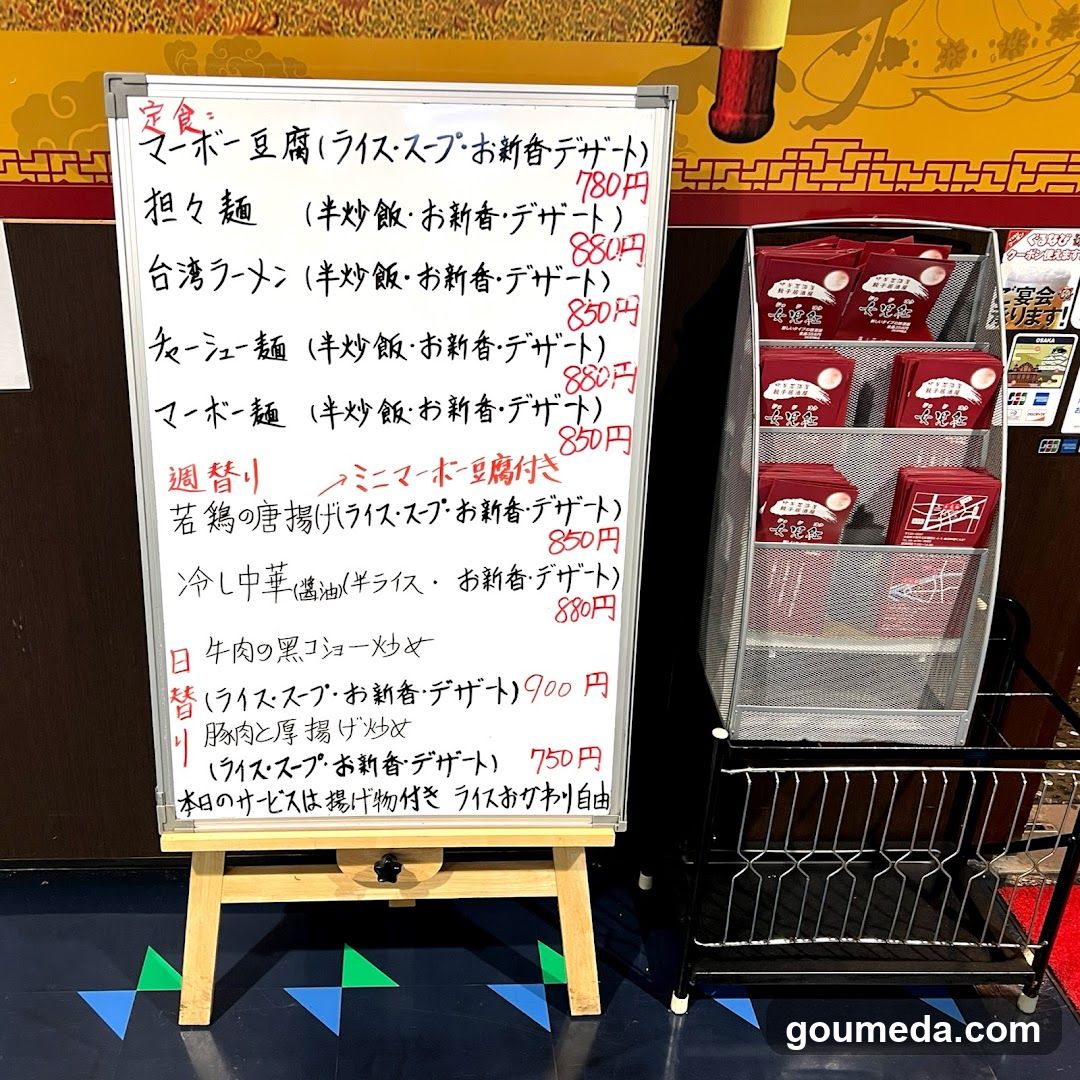 定食:
マーボー豆腐(ライス・スープ・お新香・デザート)
780円
担々麺 (半炒飯・お新香・デザート)
880円
台湾ラーメン (半炒飯・お新香・デザート)
850円
チャーシュー麺 (半炒飯・お新香・デザート)
880円
マーボー麺 (半炒飯・お新香・デザート)
850円
週替り →ミニマーボー豆腐付き
若鶏の唐揚げ(ライス・スープ・お新香・デザート)
850円
冷し中華(醤油)(半ライス・ お新香・デザート)
880円
日替り
牛肉の黒コショー炒め
(ライス・スープ・お新香・デザート)900円
豚肉と厚揚げ炒め
(ライス・スープ・お新香・デザート) 750円
本日のサービスは揚げ物付き ライスおかわり自由
餃子居酒屋
女児紅
餃子居酒屋
女児紅
餃子居酒屋
女児紅
餃子居酒屋
女児紅
女児紅
ぐるなび
クーポン使えます
ご宴会
OSAKA
JCB
goumeda.com